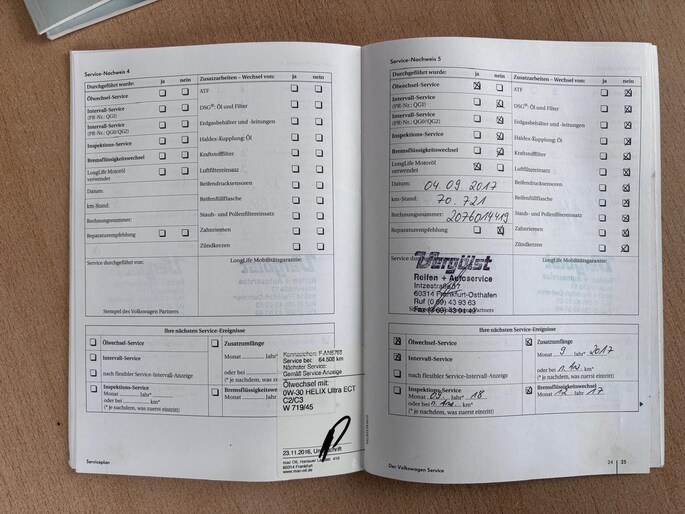 Service-Nachweis 4
Durchgeführt wurde: ja nein Zusatzarbeiten – Wechsel von: ja nein
Ölwechsel-Service ATF
Intervall-Service
(PR-Nr.: QG1) DSG®: Öl und Filter
Intervall-Service
(PR-Nr.: QG0/QG2) Erdgasbehälter und -leitungen
Inspektions-Service Haldex-Kupplung: Öl
Bremsflüssigkeitswechsel Kraftstofffilter
LongLife Motoröl
verwendet Luftfiltereinsatz
Datum: Reifendrucksensoren
km-Stand: Reifenfüllflasche
Rechnungsnummer: Staub- und Pollenfiltereinsatz
Reparaturempfehlung Zahnriemen
Zündkerzen
Service durchgeführt von: LongLife Mobilitätsgarantie:
Stempel des Volkswagen Partners
Ihre nächsten Service-Ereignisse
Ölwechsel-Service Zusatzumfänge
Monat Jahr*
Intervall-Service oder bei
nach flexibler Service-Intervall-Anzeige (* je nachdem, was
Inspektions-Service
Monat Jahr* Bremsflüssigkeitswechsel
oder bei km*
(* je nachdem, was zuerst eintritt)
Kennzeichen: F-AN
Service bei: 64.508 km
Nächster Service:
Gemäß Service-Anzeige
Ölwechsel mit:
0W-30 HELIX Ultra ECT
C2/C3
W 719/45
23.11.2016, Unterschrift
mac Oil, Hanauer Landstr. 419
60314 Frankfurt
www.mac-oil.de
Serviceplan
Service-Nachweis 5
Durchgeführt wurde: ja nein Zusatzarbeiten – Wechsel von: ja nein
Ölwechsel-Service ATF
Intervall-Service
(PR-Nr.: QG1) DSG®: Öl und Filter
Intervall-Service
(PR-Nr.: QG0/QG2) Erdgasbehälter und -leitungen
Inspektions-Service Haldex-Kupplung: Öl
Bremsflüssigkeitswechsel Kraftstofffilter
LongLife Motoröl
verwendet Luftfiltereinsatz
Datum: 04.09.2017 Reifendrucksensoren
km-Stand: 70.721 Reifenfüllflasche
Rechnungsnummer: 2076014419 Staub- und Pollenfiltereinsatz
Reparaturempfehlung Zahnriemen
Zündkerzen
Service durchgeführt von: LongLife Mobilitätsgarantie:
Vergölst
Reifen + Autoservice
Intzestraße
60314 Frankfurt-Osthafen
Ruf (0 69) 43 93 63
Fax (0 69) 43 01 49
Ihre nächsten Service-Ereignisse
Ölwechsel-Service Zusatzumfänge
Monat 9 Jahr* 2017
Intervall-Service oder bei km*
nach flexibler Service-Intervall-Anzeige (* je nachdem, was zuerst eintritt)
Inspektions-Service Bremsflüssigkeitswechsel
Monat 09 Jahr* 18 Monat 12 Jahr 17
oder bei km*
(* je nachdem, was zuerst eintritt)
Der Volkswagen Service
24 25